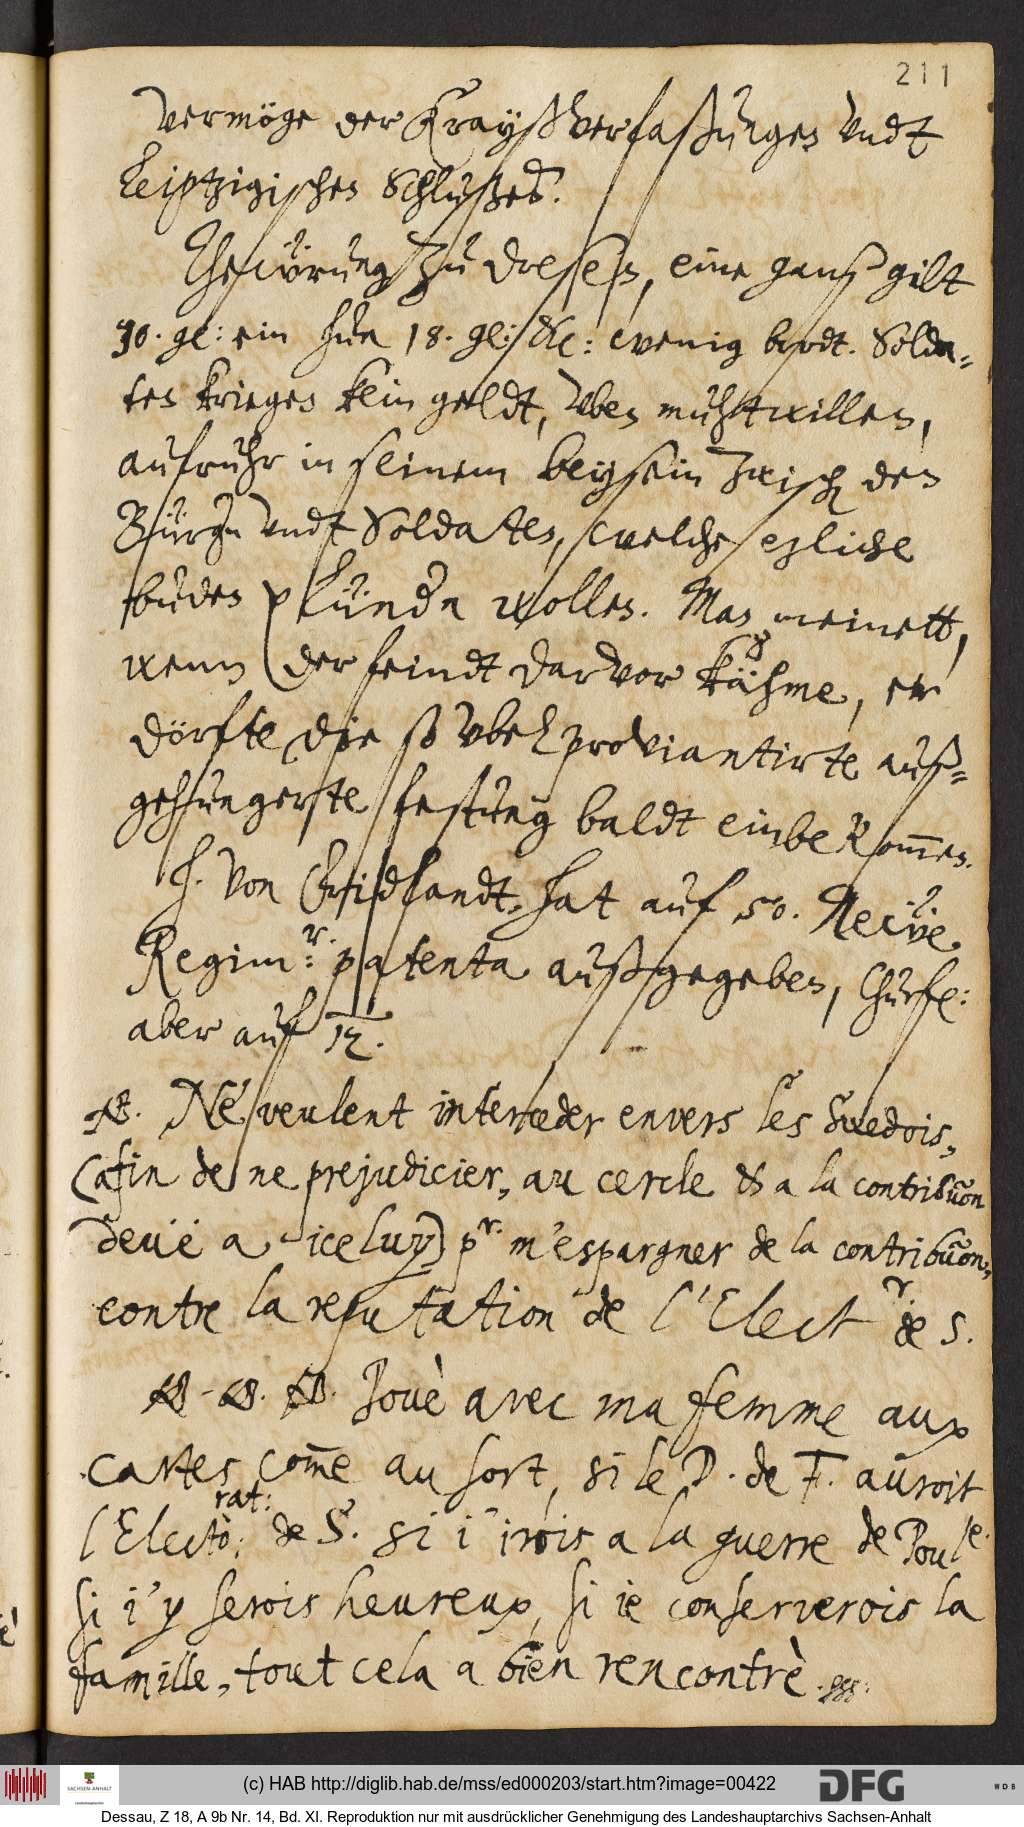 211
vermöge der Krayßverfaßungen undt
Leiptzigischen Schlußes.
Thewrung zu Dresen, eine ganß gilt
30. gl: ein hun 18. gl: &c: wenig brodt. Solda-
ten kriegen klein geldt, uben muhtwillen,
aufruhr in seinem beysein zwisch den
Bürgn undt Soldaten, welche ezliche
buden plündn wollen. Man meinett,
wenn der feindt darvor kähme, er
dörfte die so ubel proviantirte auß-
gehungerte festung baldt einbekommen.
H. von hat auf 50. Newe
Regimr: patenta außgegeben, Churfl:
aber auf 12.
Ne veulent interceder envers les Suedois,
(afin de ne prejudicier, au cercle & a la contribuon
deuë a iceluy) pr. m'espargner de la contribuon,
contre la reputation de l'Electr. de S.
Jouè avec ma femme aux
cartes comme au sort, si le D. de F. auroit
l'Electorat: de S. si i'irois a la guerre de Poule.
si i'y serois heureux, si ie conserverois la
famille, tout cela a bien rencontrè.
(c) HAB http://diglib.hab.de/mss/ed000203/start.htm?image=00422
SACHSEN-ANHALT
DFG
WDB
Dessau, Z 18, A 9b Nr. 14, Bd. XI. Reproduktion nur mit ausdrücklicher Genehmigung des Landeshauptarchivs Sachsen-Anhalt